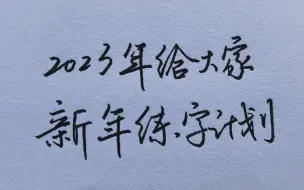 2023年给大家
新年练字计划